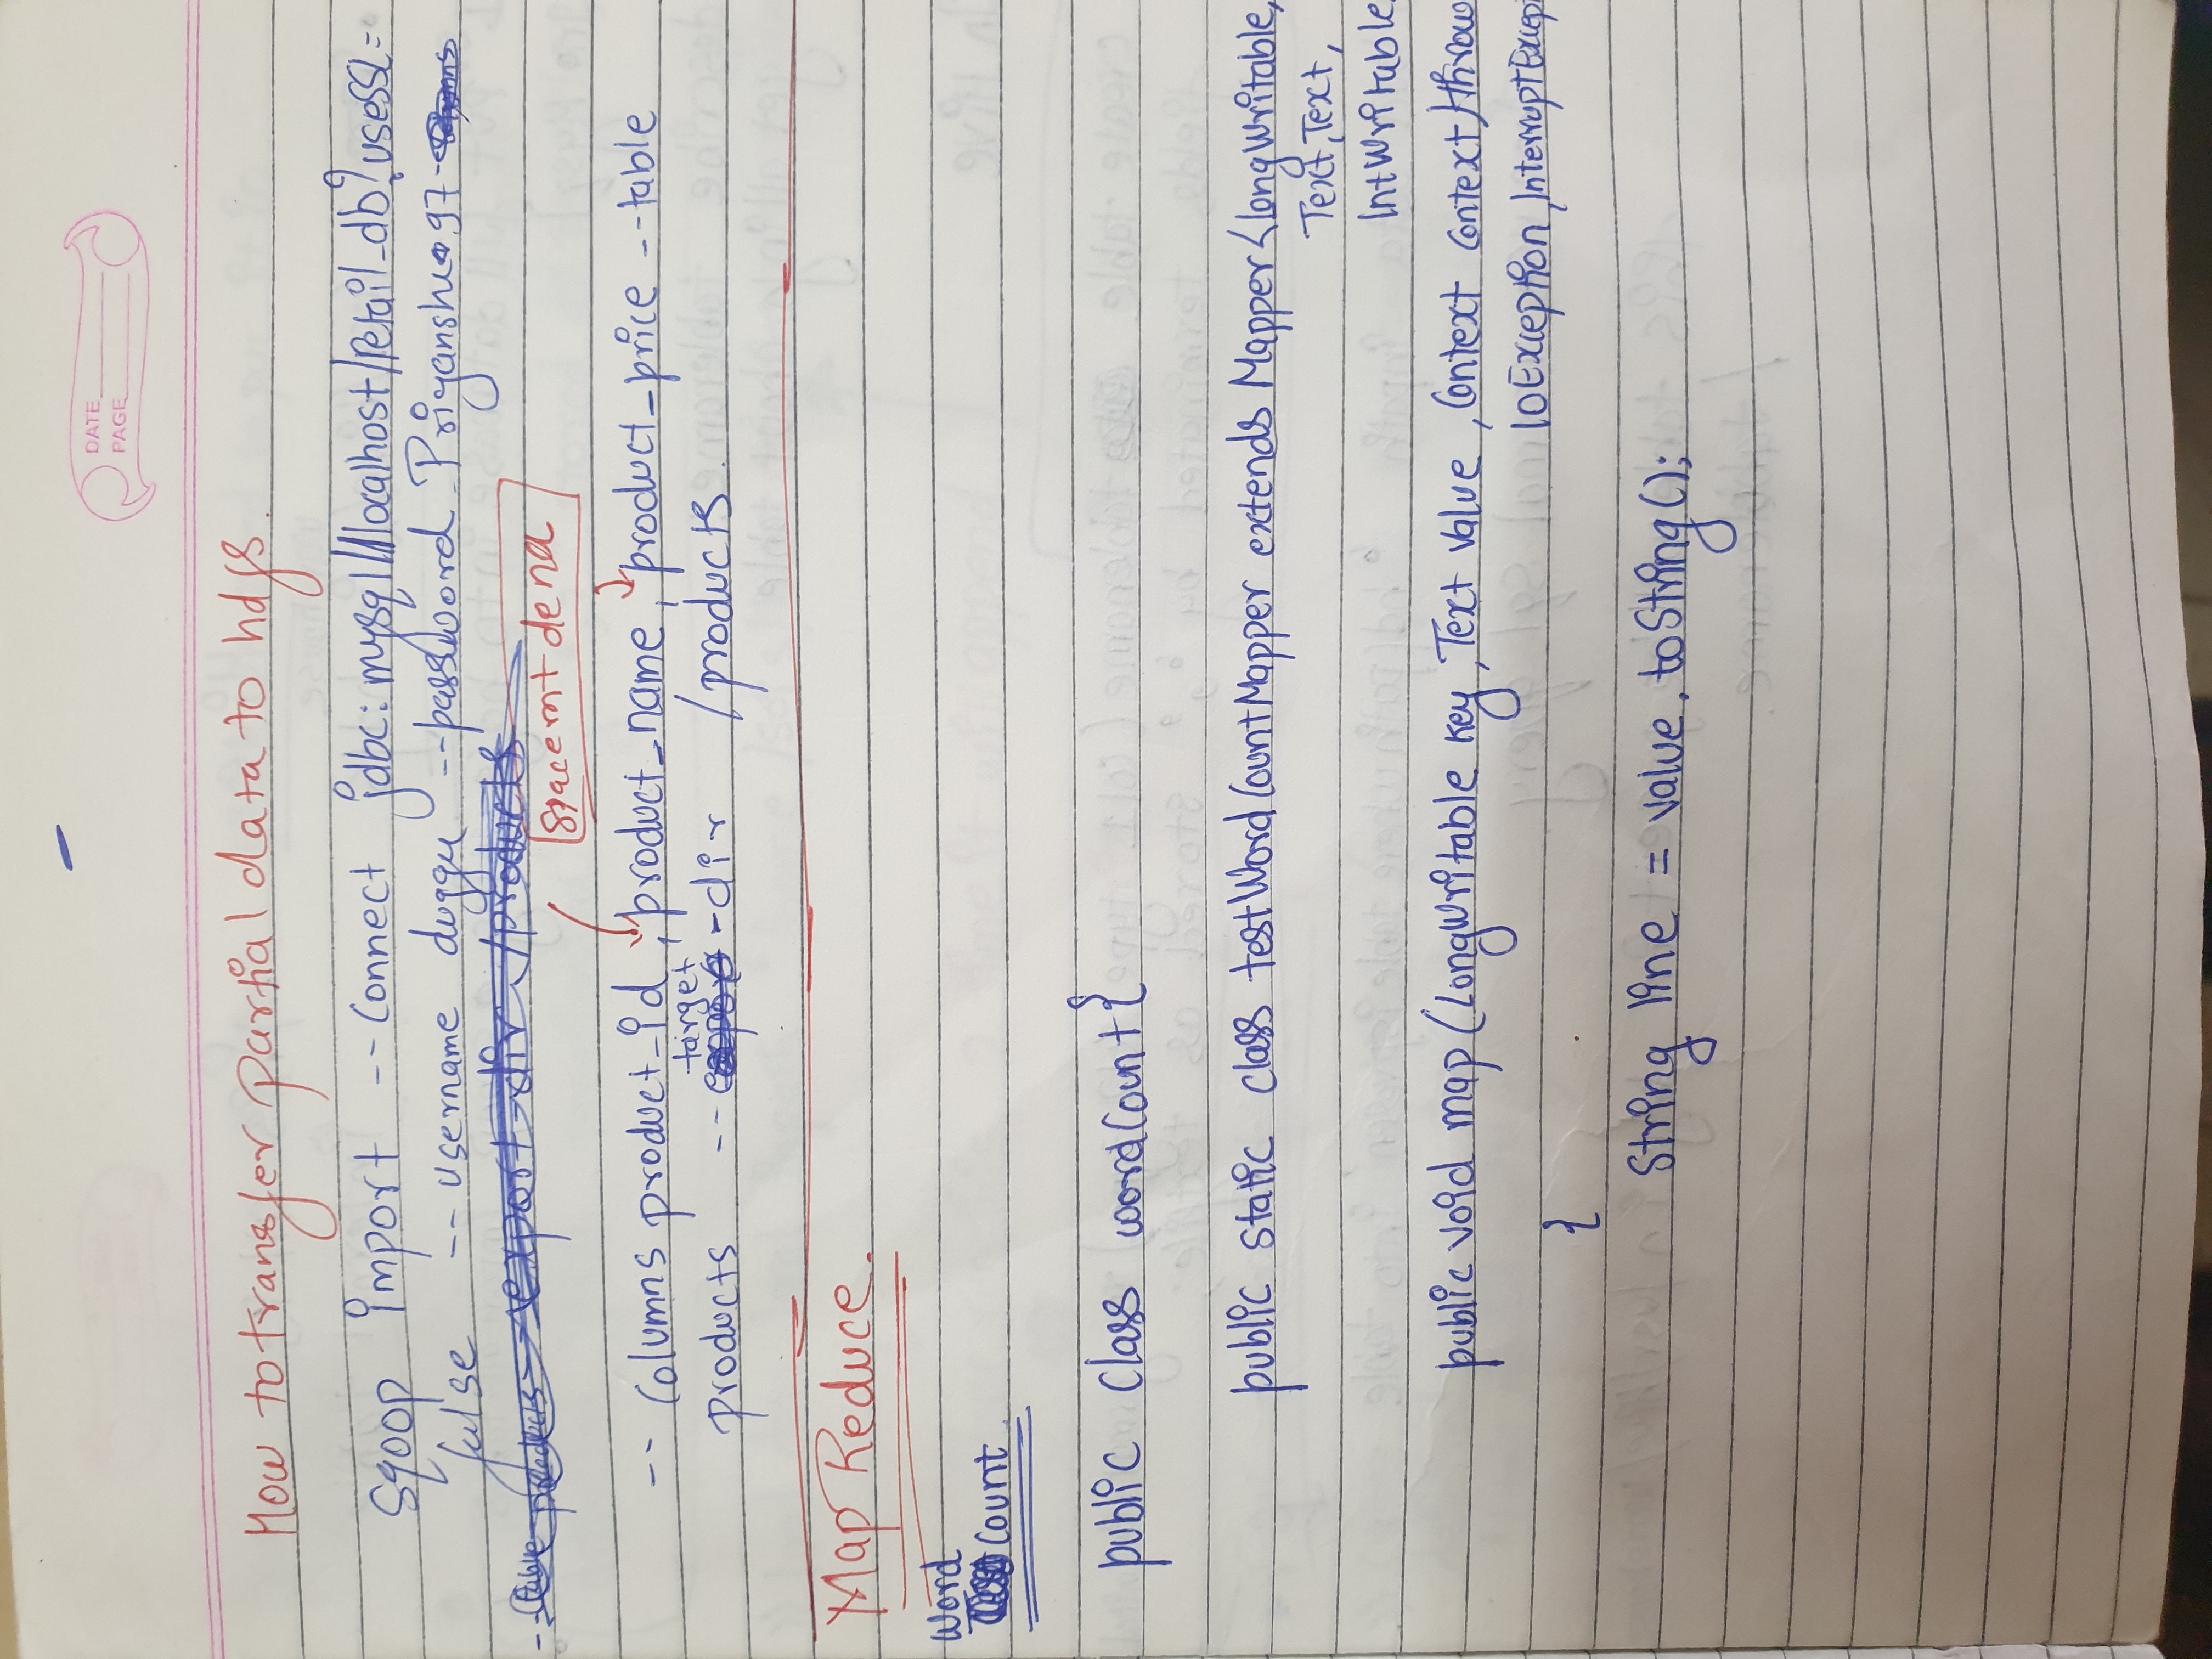 DATE
PAGE
How to transfer partial data to hdfs.
Sqoop import -- connect jdbc:mysql://localhost/retail_db?useSSL=
false -- username duggu --password Priyanshu@97
spacemt dena
-- Columns product_id , product_name, product_price --table
target
products -- -dir /products.
Map Reduce.
Word
Count.
public class wordCount{
public static class testWordCountMapper extends Mapper<LongWritable,
Text, Text,
IntWritable
public void map (LongWritable key, Text value, Context context) throw
IOException, InterruptExcep
{
String line = value.toString();